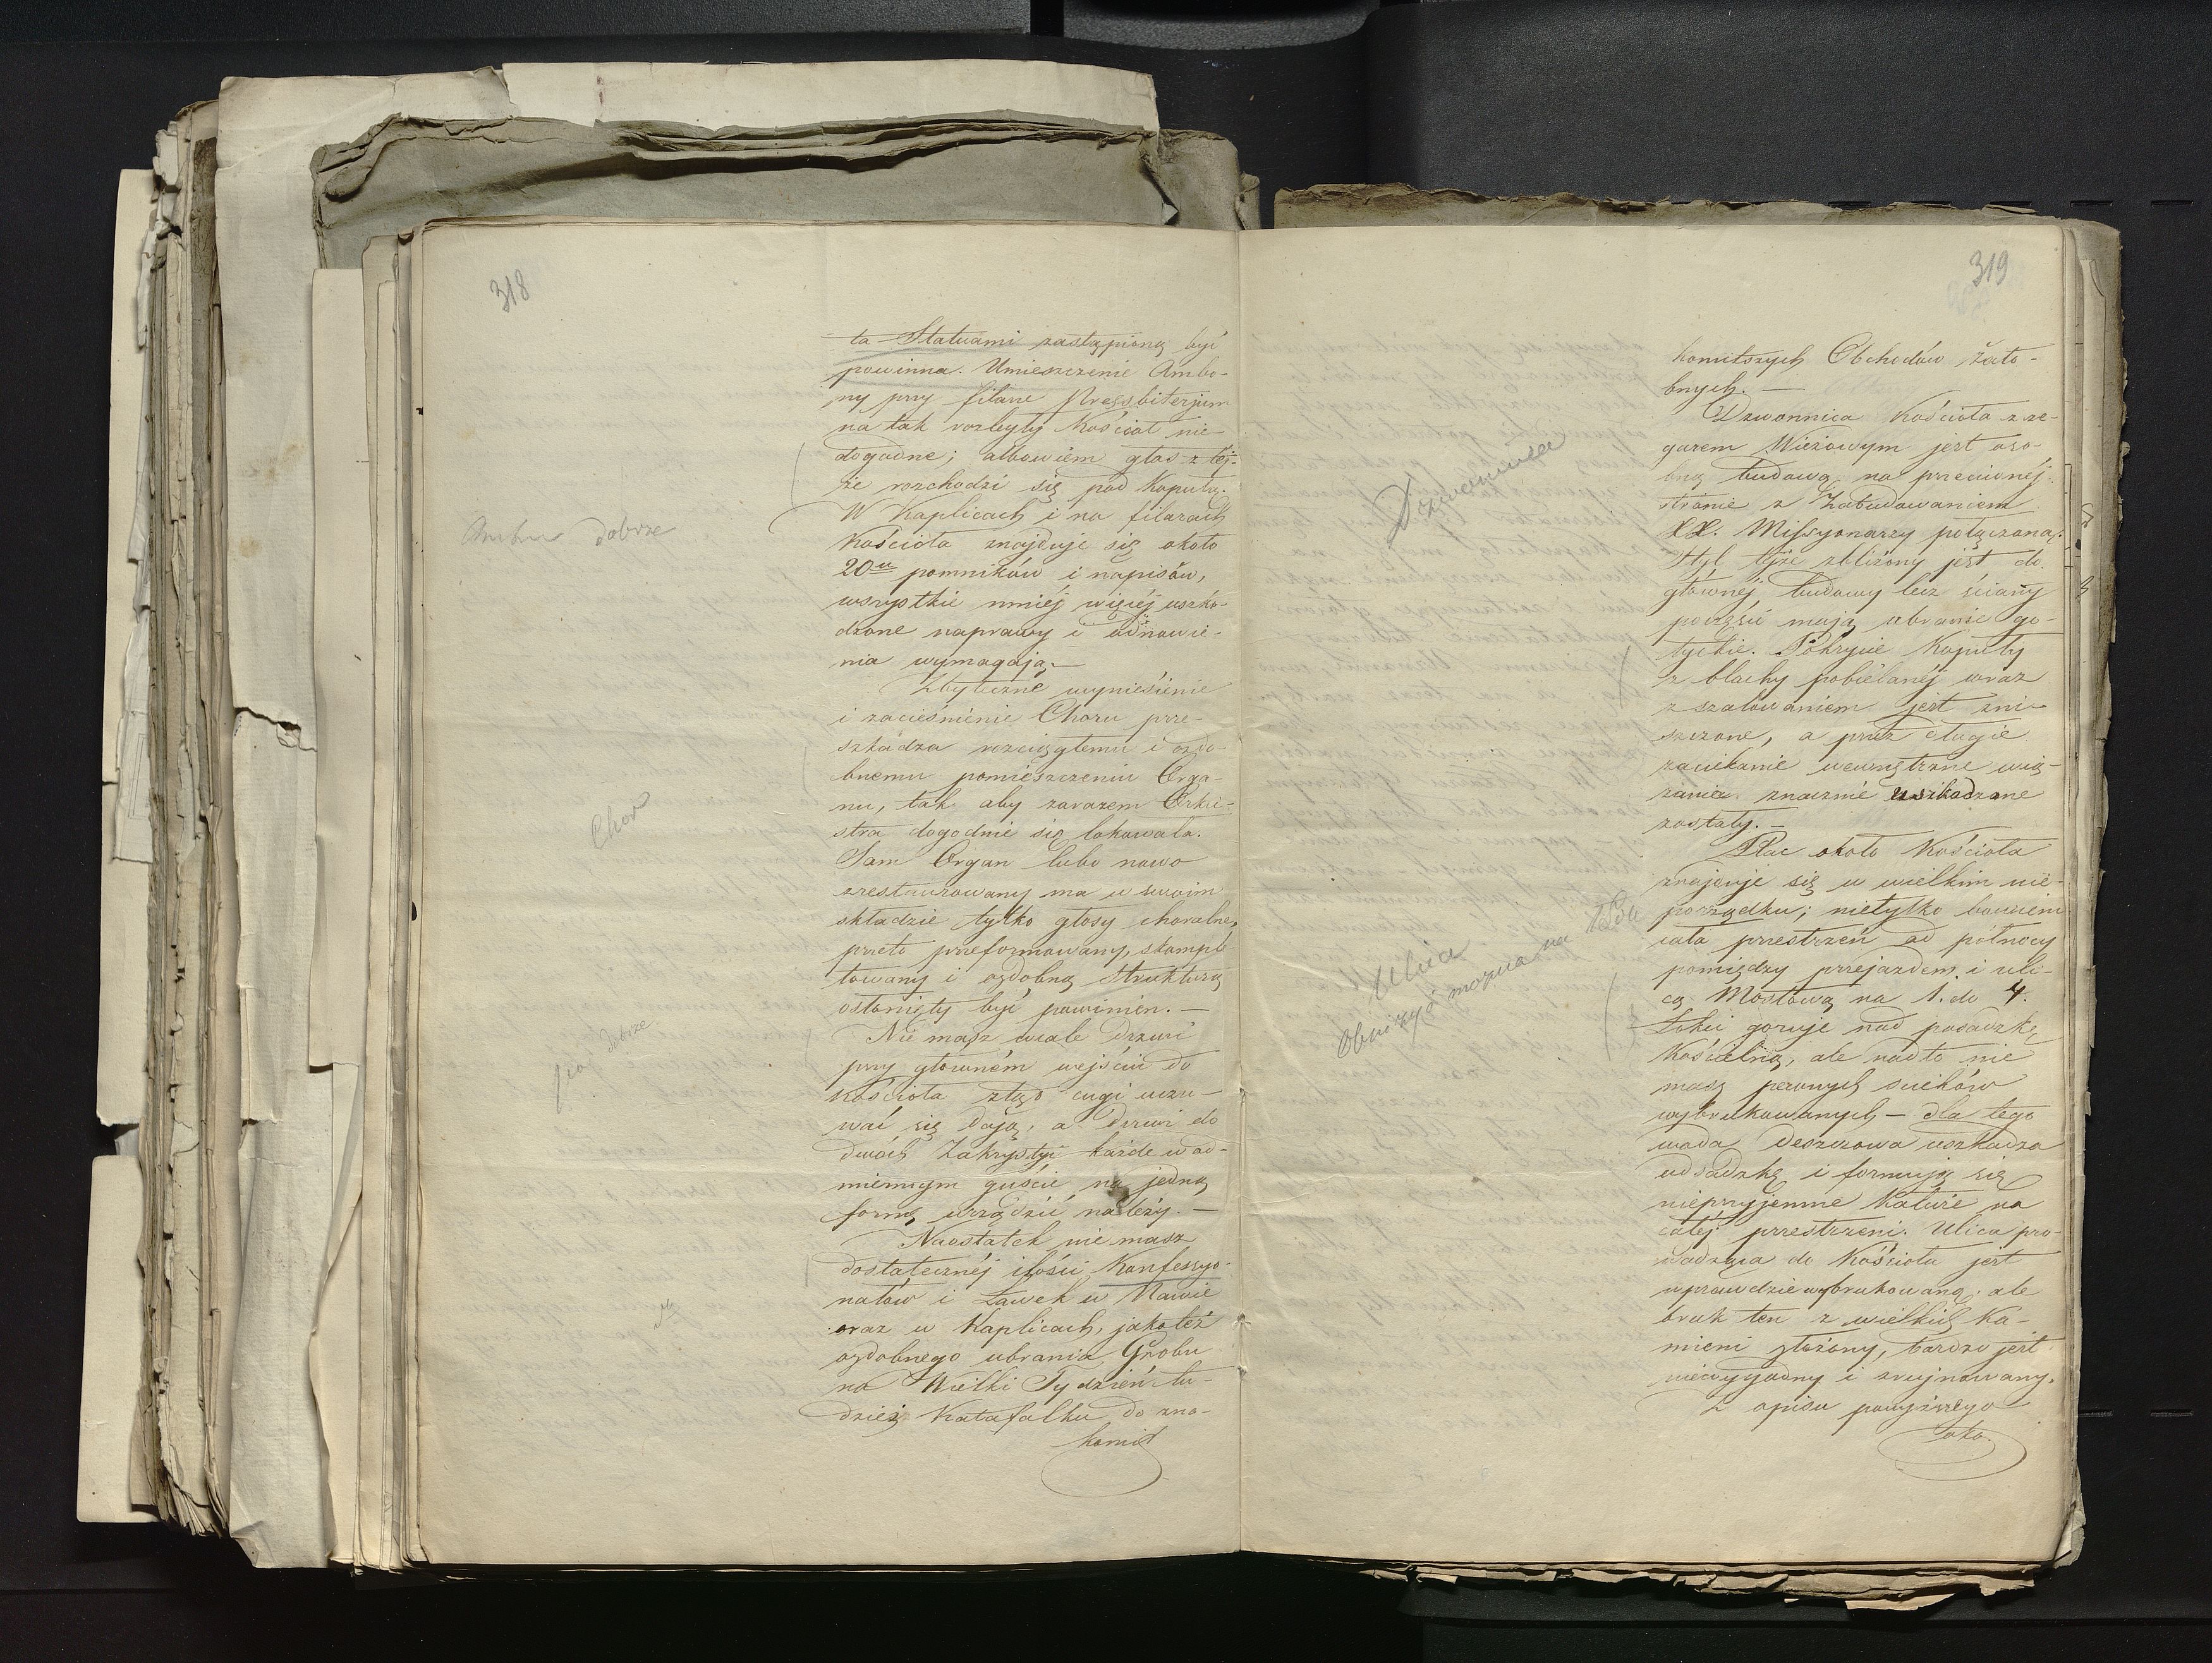 318
ta Statuami zastąpioną być
powinna. Umieszczenie Ambo-
ny przy filarze Pressbiterjum
na tak rozległy Kościoł nie-
dogodne; albowiem głos z tej-
że rozchodzi się pod Kopułą.
W Kaplicach i na filarach
Kościoła znajduje się około
20u pomników i napisów,
wszystkie mniéj więcéj uszko-
dzone naprawy i odnowie-
nia wymagają.—
Zbyteczne wyniesienie
i zacieśnienie Choru prze-
szkadza rozciągłemu i ozdo-
bnemu pomieszczeniu Orga-
nu, tak aby zarazem Orkie-
stra dogodnie się lokowała.
Sam Organ lubo nowo
zrestaurowany ma w swoim
składzie tylko głosy choralne,
przeto przeformowany, skomple-
towany i ozdobną strukturą
osłonięty być powinien.—
Nie masz wcale drzwi
przy głowném wejściu do
Kościoła ztąd cugi uczu-
wać się dają, a drzwi do
dwóch Zakrystyi każde w od-
miennym guście na jedną
formę urządzić należy.—
Naostatek nie masz
dostatecznéj ilości Konfessyo-
nałów i Ławek w Nawie
oraz w Kaplicach, jakoteż
ozdobnego ubrania Grobu
na Wielki Tydzień tu-
dzież Katafalku do zna-
komit
dobrze
Chor
dobrze
319
komitszych Obchodów żało-
bnych.—
Dzwonnica Kościoła z ze-
garem Wieżowym jest oso-
bną budową na przeciwnéj
stronie z Zabudowaniem
XX. Missyonarzy połączoną.
Styl tejże zbliżony jest do
głównéj budowy lecz ściany
poczęści mają ubranie go-
tyckie. Pokrycie Kopuły
z blachy pobielanéj wraz
z szalowaniem jest zni-
szczone, a przez długie
zaciekanie wewnętrzne wią-
zania znacznie uszkodzone
zostały.—
Plac około Kościoła
znajduje się w wielkim nie-
porządku; nietylko bowiem
cała przestrzeń od północy
pomiędzy przejazdem i uli-
cą Mostową na 1. do 4.
Łokci goruje nad posadzkę
Kościelną, ale nadto nie
masz pewnych ścieków
wybrukowanych — dla tego
woda deszczowa uszkadza
odsadzkę i formują się
nieprzyjemne Kałuże na
całéj przestrzeni. Ulica pro-
wadząca do Kościoła jest
wprawdzie wybrukowaną, ale
bruk ten z wielkich Ka-
mieni złożony, bardzo jest
niewygodny i zrujnowany.
Z opisu powyższego
oko-
Dzwonnica
Ulica
Obniżyć można na